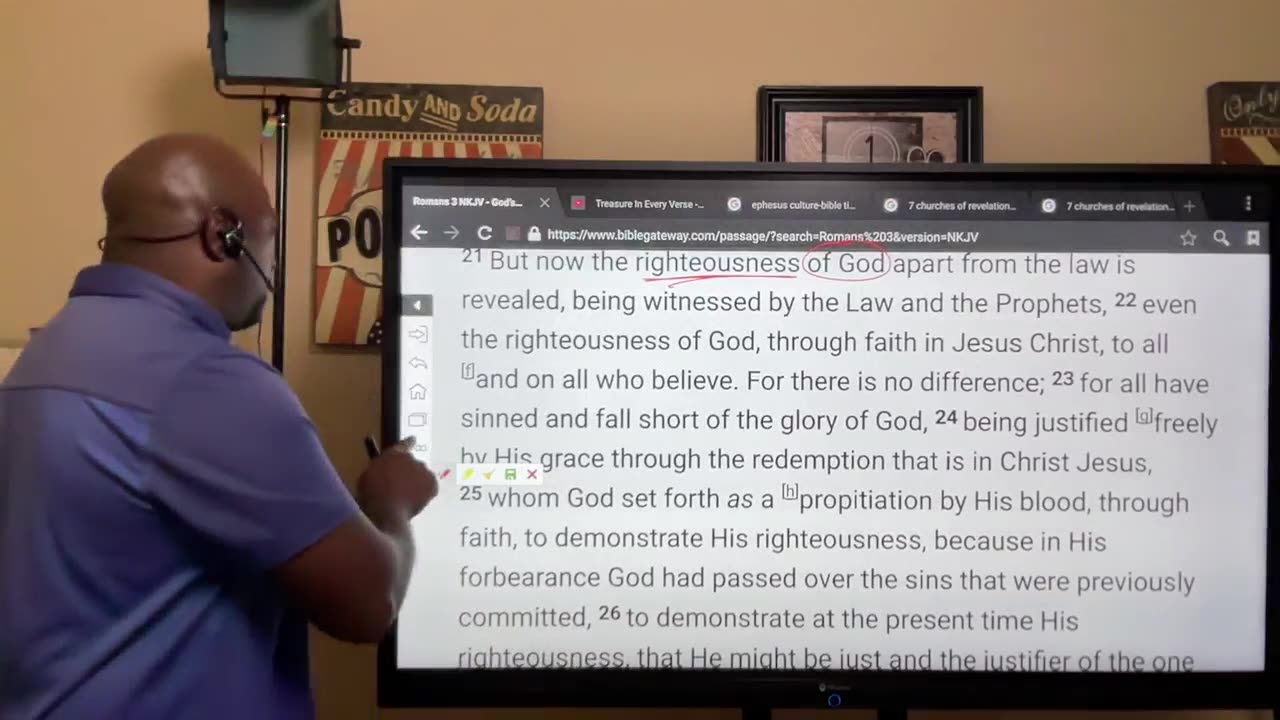 Candy AND Soda
Only
PO
1
Romans 3 NKJV - God's...
Treasure In Every Verse -...
ephesus culture-bible ti...
7 churches of revelation...
7 churches of revelation...
https://www.biblegateway.com/passage/?search=Romans%203&version=NKJV
21 But now the righteousness of God apart from the law is
revealed, being witnessed by the Law and the Prophets, 22 even
the righteousness of God, through faith in Jesus Christ, to all
[f]and on all who believe. For there is no difference; 23 for all have
sinned and fall short of the glory of God, 24 being justified [g]freely
by His grace through the redemption that is in Christ Jesus,
25 whom God set forth as a [h]propitiation by His blood, through
faith, to demonstrate His righteousness, because in His
forbearance God had passed over the sins that were previously
committed, 26 to demonstrate at the present time His
righteousness, that He might be just and the justifier of the one